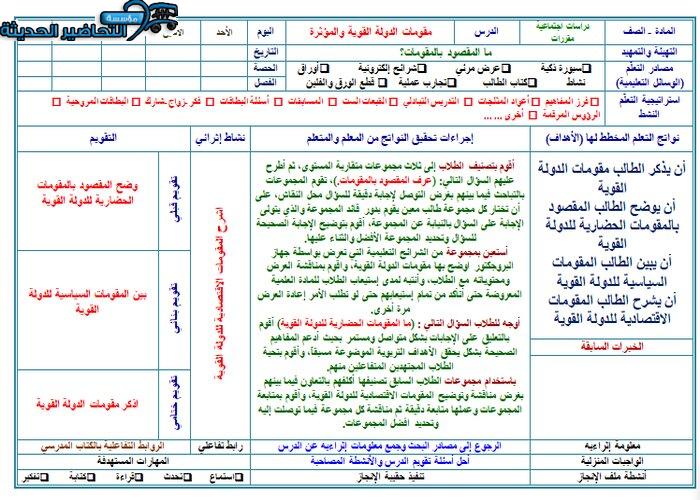 مؤسسة
التحاضير الحديثة
المادة - الصف
دراسات اجتماعية
مقررات
الدرس
مقومات الدولة القوية والمؤثرة
اليوم
الأحد
التهيئة والتمهيد
ما المقصود بالمقومات؟
التاريخ
مصادر التعلم
(الوسائل التعليمية)
سبورة ذكية
عرض مرئي
شرائح إلكترونية
أوراق
نشاط
كتاب الطالب
تجارب عملية
قطع الورق والفلين
الحصة
الفصل
استراتيجية التعلم
النشط
فرز المفاهيم
أعواد المثلجات
التدريس التبادلي
القبعات الست
المسابقات
أسئلة البطاقات
فكر -زواج -شارك
البطاقات المروحية
الرؤوس المرقمة
أخرى ... ...
نواتج التعلم المخطط لها (الأهداف)
إجراءات تحقيق النواتج من المعلم والمتعلم
نشاط إثرائي
التقويم
أن يذكر الطالب مقومات الدولة
القوية
أن يوضح الطالب المقصود
بالمقومات الحضارية للدولة
القوية
أن يبين الطالب المقومات
السياسية للدولة القوية
أن يشرح الطالب المقومات
الاقتصادية للدولة القوية
الخبرات السابقة
أقوم بتصنيف الطلاب إلى ثلاث مجموعات متقاربة المستوى، ثم أطرح
عليهم السؤال التالي: (عرف المقصود بالمقومات.)، تقوم المجموعات
بالتباحث فيما بينهم بغرض التوصل لإجابة دقيقة للسؤال محل النقاش، على
أن تختار كل مجموعة طالب معين يقوم بدور قائد المجموعة والذي يتولى
الإجابة على السؤال بالنيابة عن المجموعة، أقوم بتوضيح الإجابة الصحيحة
للسؤال وتحديد المجموعة الأفضل والثناء عليها.
أستعين بمجموعة من الشرائح التعليمية التي تعرض بواسطة جهاز
البروجكتور أوضح بها مقومات الدولة القوية، وأقوم بمناقشة العرض
ومحتوياته مع الطلاب، وأنتبه لمدى إستيعاب الطلاب للمادة العلمية
المعروضة حتى أتأكد من تمام إستيعابهم حتى لو تطلب الأمر إعادة العرض
مرة أخرى.
أوجه للطلاب السؤال التالي : (ما المقومات الحضارية للدولة القوية) أقوم
بالتعليق على الإجابات بشكل متواصل ومستمر بحيث أدعم المفاهيم
الصحيحة بشكل يحقق الأهداف التربوية الموضوعة مسبقاً، وأقوم بتحية
الطلاب المجتهدين المتفاعلين منهم.
باستخدام مجموعات الطلاب السابق تصنيفها أكلفهم بالتعاون فيما بينهم
بغرض مناقشة وتوضيح المقومات الاقتصادية للدولة القوية، وأقوم بمتابعة
المجموعات وعملها متابعة دقيقة ثم مناقشة كل مجموعة فيما توصلت إليه
وتحديد أفضل المجموعة.
اشرح المقومات الاقتصادية للدولة القوية
تقويم قبلي
وضح المقصود بالمقومات
الحضارية للدولة القوية
تقويم بنائي
بين المقومات السياسية للدولة
القوية
تقويم ختامي
اذكر مقومات الدولة القوية
معلومة إثرائيه
الرجوع إلى مصادر البحث وجمع معلومات إثراءيه عن الدرس
رابط تفاعلي
الروابط التفاعلية بالكتاب المدرسي
الواجبات المنزلية
أحل أسئلة تقويم الدرس والأنشطة المصاحبة
المهارات المستهدفة
أنشطة ملف الإنجاز
تنفيذ حقيبة الإنجاز
استماع
تحدث
قراءة
كتابة
تفكير